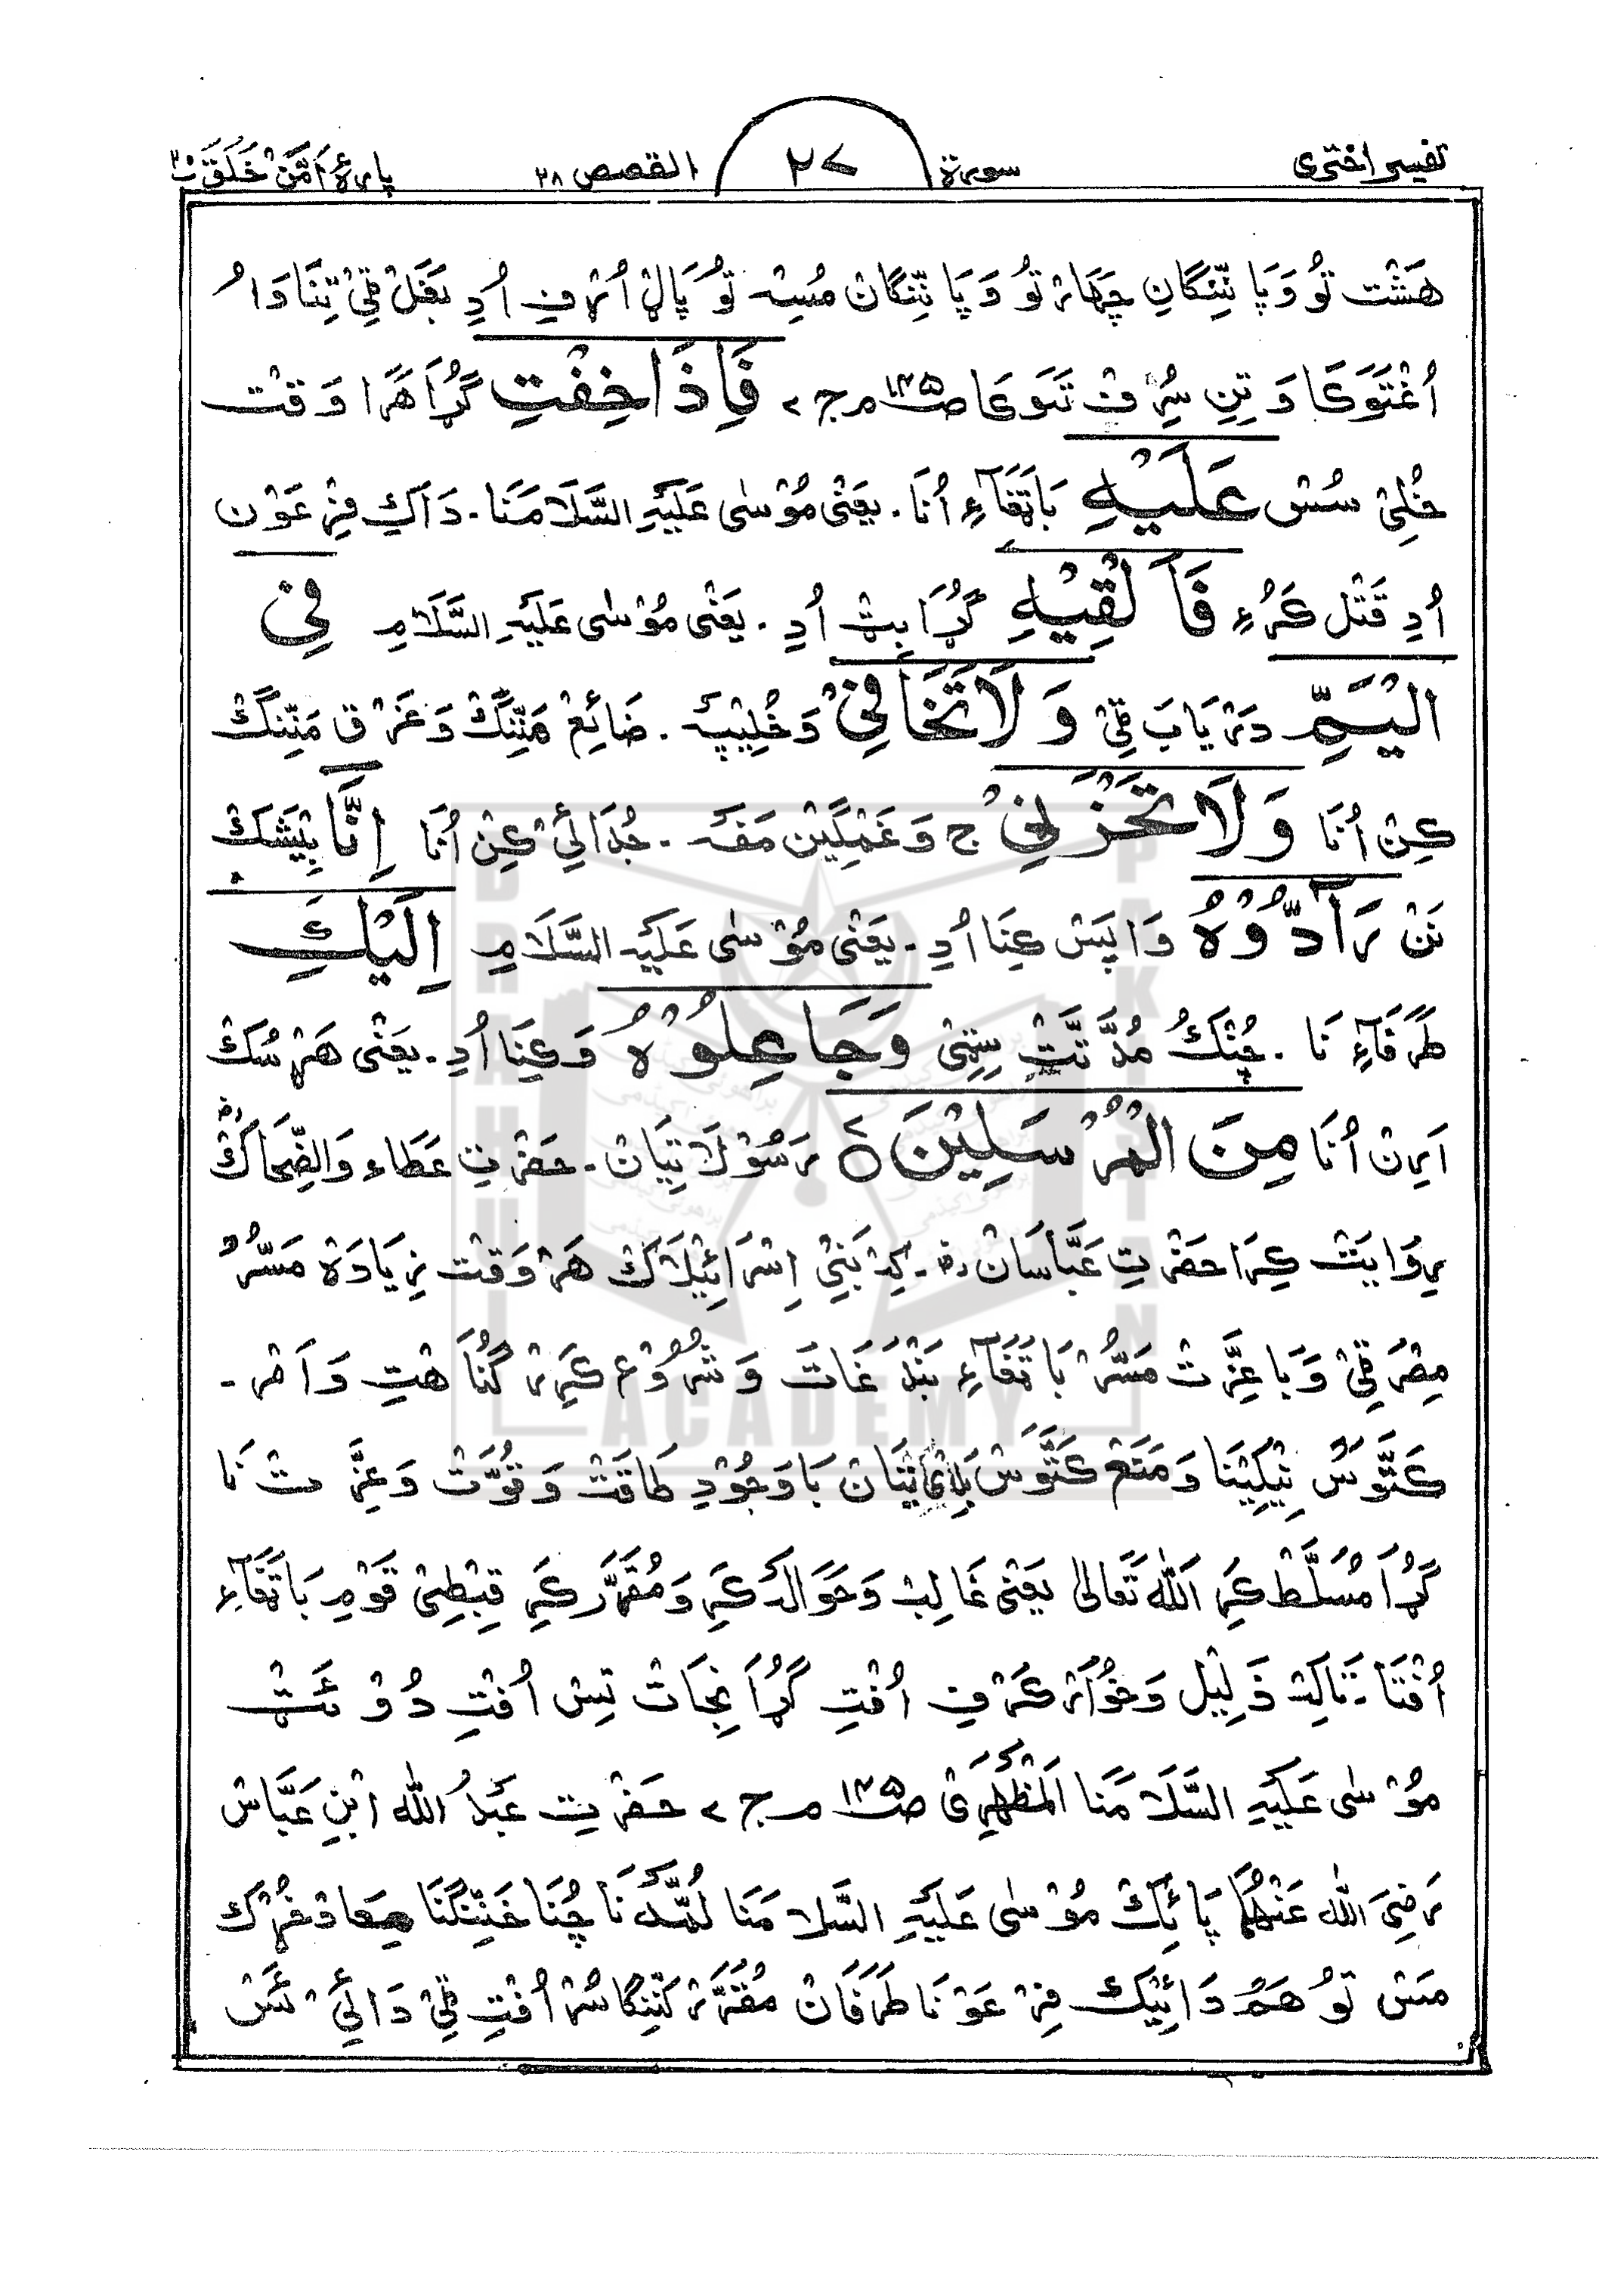 تفسیر اختری سورة ۲۷ القصص ۲۸ پارهٔ اَمَّنْ خَلَقَ ۲۰
هَشْت تُو وَ پَا نِنْگانِ چَهَارْ تُو وَ پَا نِنْگانْ مُسِہ تُو پَالْ اُسْرفِ اُدِ بَغَل ٹِیْ تِنَا وَا
اُغْتَوَکَا وَ تِنِ سُرِفْ تَوَکَا صـ۱۴۵ـ م ج ۷ فَاِذَا خِفْتِ گُڑَا ھَرَا وَقْت
خُلِیْ سُس عَلَیْهِ بَاتْغَاءِ اُنَا۔ یَعْنٰی مُوْسٰی عَلَیْهِ السَّلَامَنَا۔ دَاکِ فِرْعَوْن
اُدِ قَتْل کَرُءِ فَاَلْقِیْهِ گُڑَا بِٹ اُدِ۔ یَعْنٰی مُوْسٰی عَلَیْهِ السَّلَامِ فِی
الْیَمِّ دَرْیَابَ ٹِیْ وَلَا تَخَافِیْ وَ خُلِیْپَہ۔ ضَائِعْ مَنِّنِگْ وَ غَرْق مَنِّنِگْ
کِنْ اُنَا وَلَا تَحْزَنِیْ ج وَ غَمْگِیْن مَفَہ۔ جُدَائِیْ کِنْ اُنَا اِنَّا بِیْشَکْ
نَنْ رَآدُّوْهُ وَاپَسْ کِنَا اُدِ۔ یَعْنٰی مُوْسٰی عَلَیْهِ السَّلَامِ اِلَیْكِ
طَرَفَاءِ نَا۔ چُنَکُ مُدَّتْ سِٹِیْ وَجَاعِلُوْهُ وَ کِنَا اُدِ۔ یَعْنٰی ھَرْسُکْ
اَرِن اُنَا مِنَ الْمُرْسَلِیْنَ ۷ رَسُوْلَاتِیَانْ۔ حَضْرتِ عَطَاء وَالضِّحَاكْ
رِوَایَتْ کِرَا حَضْرتِ عَبَّاسَانْ رض۔ کِہ بَنِیْ اِسْرَائِیْلَاكْ ھَرْوَقْت زِیَادَہْ مَسُّرْ
مِصْرَ ٹِیْ وَ بَا عِزَّتْ مَسُّرْ بَاتْغَآءِ بَنْدَغَاتَ وَ شُرُوْع کَرِرْ گُنَاھْتِ وَ اَمْر۔
کَتَّوَسْ نِیْکِیْنَا وَ مَنَعْ کَتَّوَسْ بَاوَجُوْدِ طَاقَتْ وَ قُوَّتْ وَ عِزَّتْ نَا
گُڑَا مُسَلَّطْ کَرِ اَللّٰہ تَعَالٰی یَعْنٰی غَالِبْ وَ حَوَالَہ کَرِ وَ مُقَرَّر کَرِ قِبْطِیْ قَوْمِ بَاتْغَآءِ
اُفْتَا۔ تَاکِہ ذَلِیْل وَ خُوَارْ کَرْفِ اُفْتِ گُڑَا نِجَاتْ تِسْ اُفْتِ دُوْ ئَٹ
مُوْسٰی عَلَیْهِ السَّلَامَنَا اَلْمَظْهَرِیْ صـ۱۴۵ـ م ج ۷ حَضْرتِ عَبْدُاللّٰہ اِبْنِ عَبَّاسْ
رَضِیَ اللّٰہ عَنْهُمَا پَائِكْ مُوْسٰی عَلَیْهِ السَّلَامَنَا لُمَّہ نَا چُنَا خَنِّنِگْنَا
مَسْ تُو ھَمْ دَائِیْك فِرْعَوْنَا طَرَفَانْ مُقَرَّرْ کَنِنْگَاسُرْ اُفْتِ ٹِیْ دَائِیْ ئَسْ